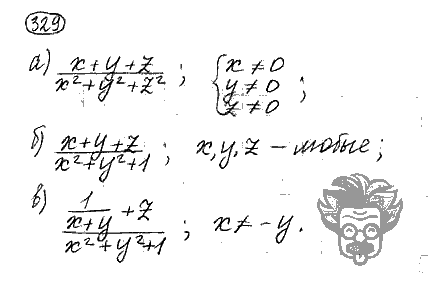 329
а) (x+y+z)/(x²+y²+z²) ; { x≠0 y≠0 z≠0 ;
б) (x+y+z)/(x²+y²+1) ; x,y,z – любые ;
в) (1/(x+y) + z)/(x²+y²+1) ; x≠-y.